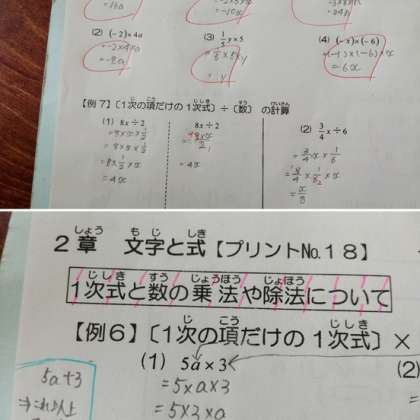 =16a
(2) (-2)×4a
=-2×4×a
=-8a
(3) 1/5 y×5
=1/5×5×y
=y
(4) (-x)×(-6)
=(-1)×(-6)×x
=6x
【例7】〔1次の項だけの1次式〕÷〔数〕の計算
(1) 8x÷2
=8×x×1/2
=8×1/2×x
=4x
8x÷2
=4x
(2) 3/4 x÷6
=3/4 x×1/6
=x/8
2章 文字と式【プリントNo.18】
1次式と数の乗法や除法について
【例6】〔1次の項だけの1次式〕×
(1) 5a×3
=5×a×3
=5×3×a
(2)
5a+3
⇒これ以上